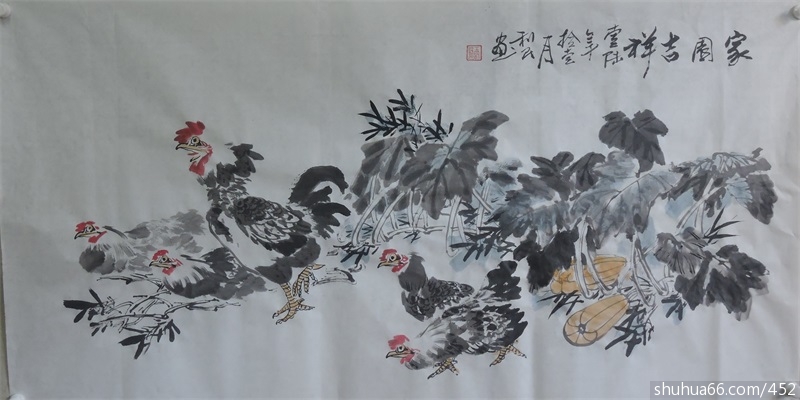 家園吉祥
壹陆年
拾壹
月
画
shuhua66.com/452